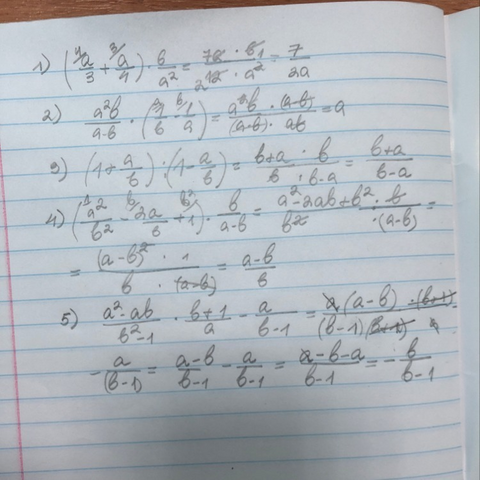 1) (⁴a/3 + ³a/4) · b/a² = 7a · b/(12 · a²) = 7/2a
2) a²b/(a-b) · (ᵃ1/b - ᵇ1/a) = a²b · (a-b)/((a-b) · ab) = a
3) (1 + a/b) : (1 - a/b) = (b+a · b)/(b · b-a) = (b+a)/(b-a)
4) (¹a²/b² - ᵇ2a/b + ᵇ²1) · b/(a-b) = (a² - 2ab + b² · b)/(b² · (a-b)) =
= (a-b)² · 1/(b · (a-b)) = (a-b)/b
5) (a² - ab)/(b² - 1) · (b+1)/a - a/(b-1) = a(a-b) · (b+1)/((b-1)(b+1) a)
- a/(b-1) = (a-b)/(b-1) - a/(b-1) = (a-b-a)/(b-1) = - b/(b-1)